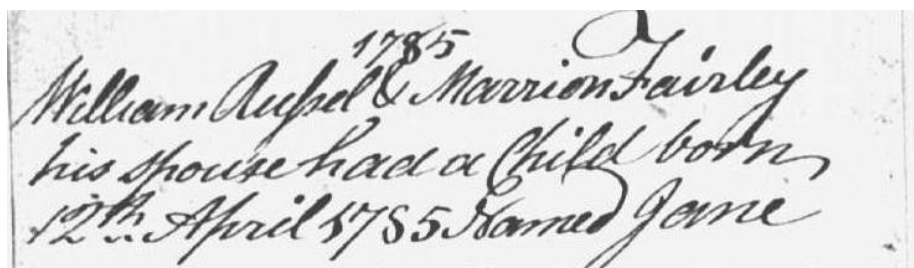 1785
William Russel & Marrion Fairley
his spouse had a Child born
12th April 1785 Named Jane